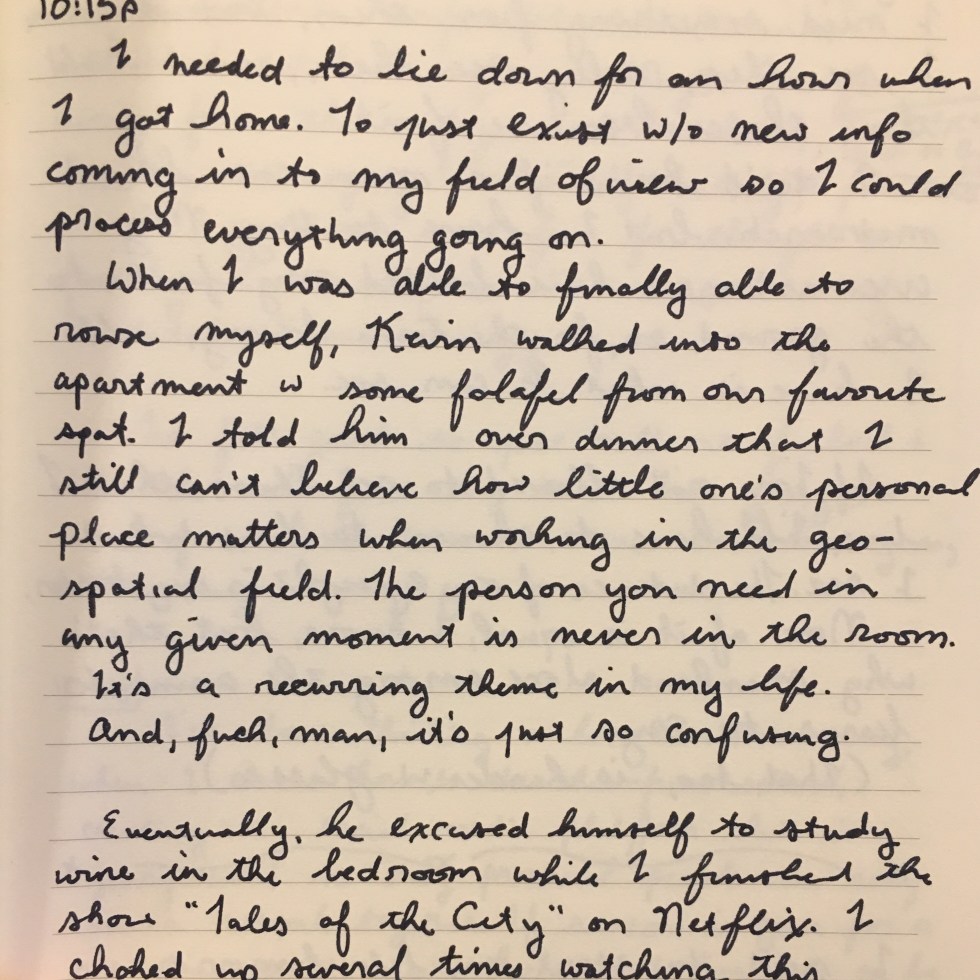 10:15p
I needed to lie down for an hour when
I got home. To just exist w/o new info
coming in to my field of view so I could
process everything going on.
When I was able to finally able to
rouse myself, Kevin walked into the
apartment w some falafel from our favorite
spot. I told him over dinner that I
still can't believe how little one's personal
place matters when working in the geo-
spatial field. The person you need in
any given moment is never in the room.
It's a recurring theme in my life.
And, fuck, man, it's just so confusing.
Eventually, he excused himself to study
wine in the bedroom while I finished the
show "Tales of the City" on Netflix. I
choked up several times watching this